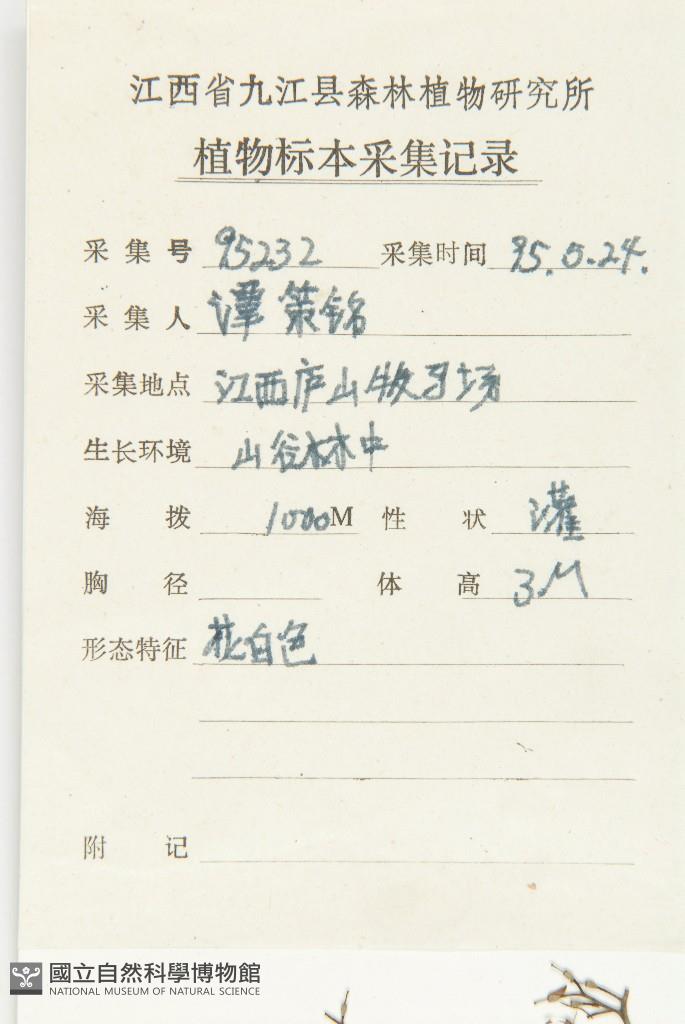 江西省九江县森林植物研究所
植物标本采集记录
采集号 95232 采集时间 95.5.24.
采集人 谭策铭
采集地点 江西庐山牧马场
生长环境 山谷林中
海拨 1000M 性状 灌
胸径 体高 3M
形态特征 花白色
附记
國立自然科學博物館
NATIONAL MUSEUM OF NATURAL SCIENCE